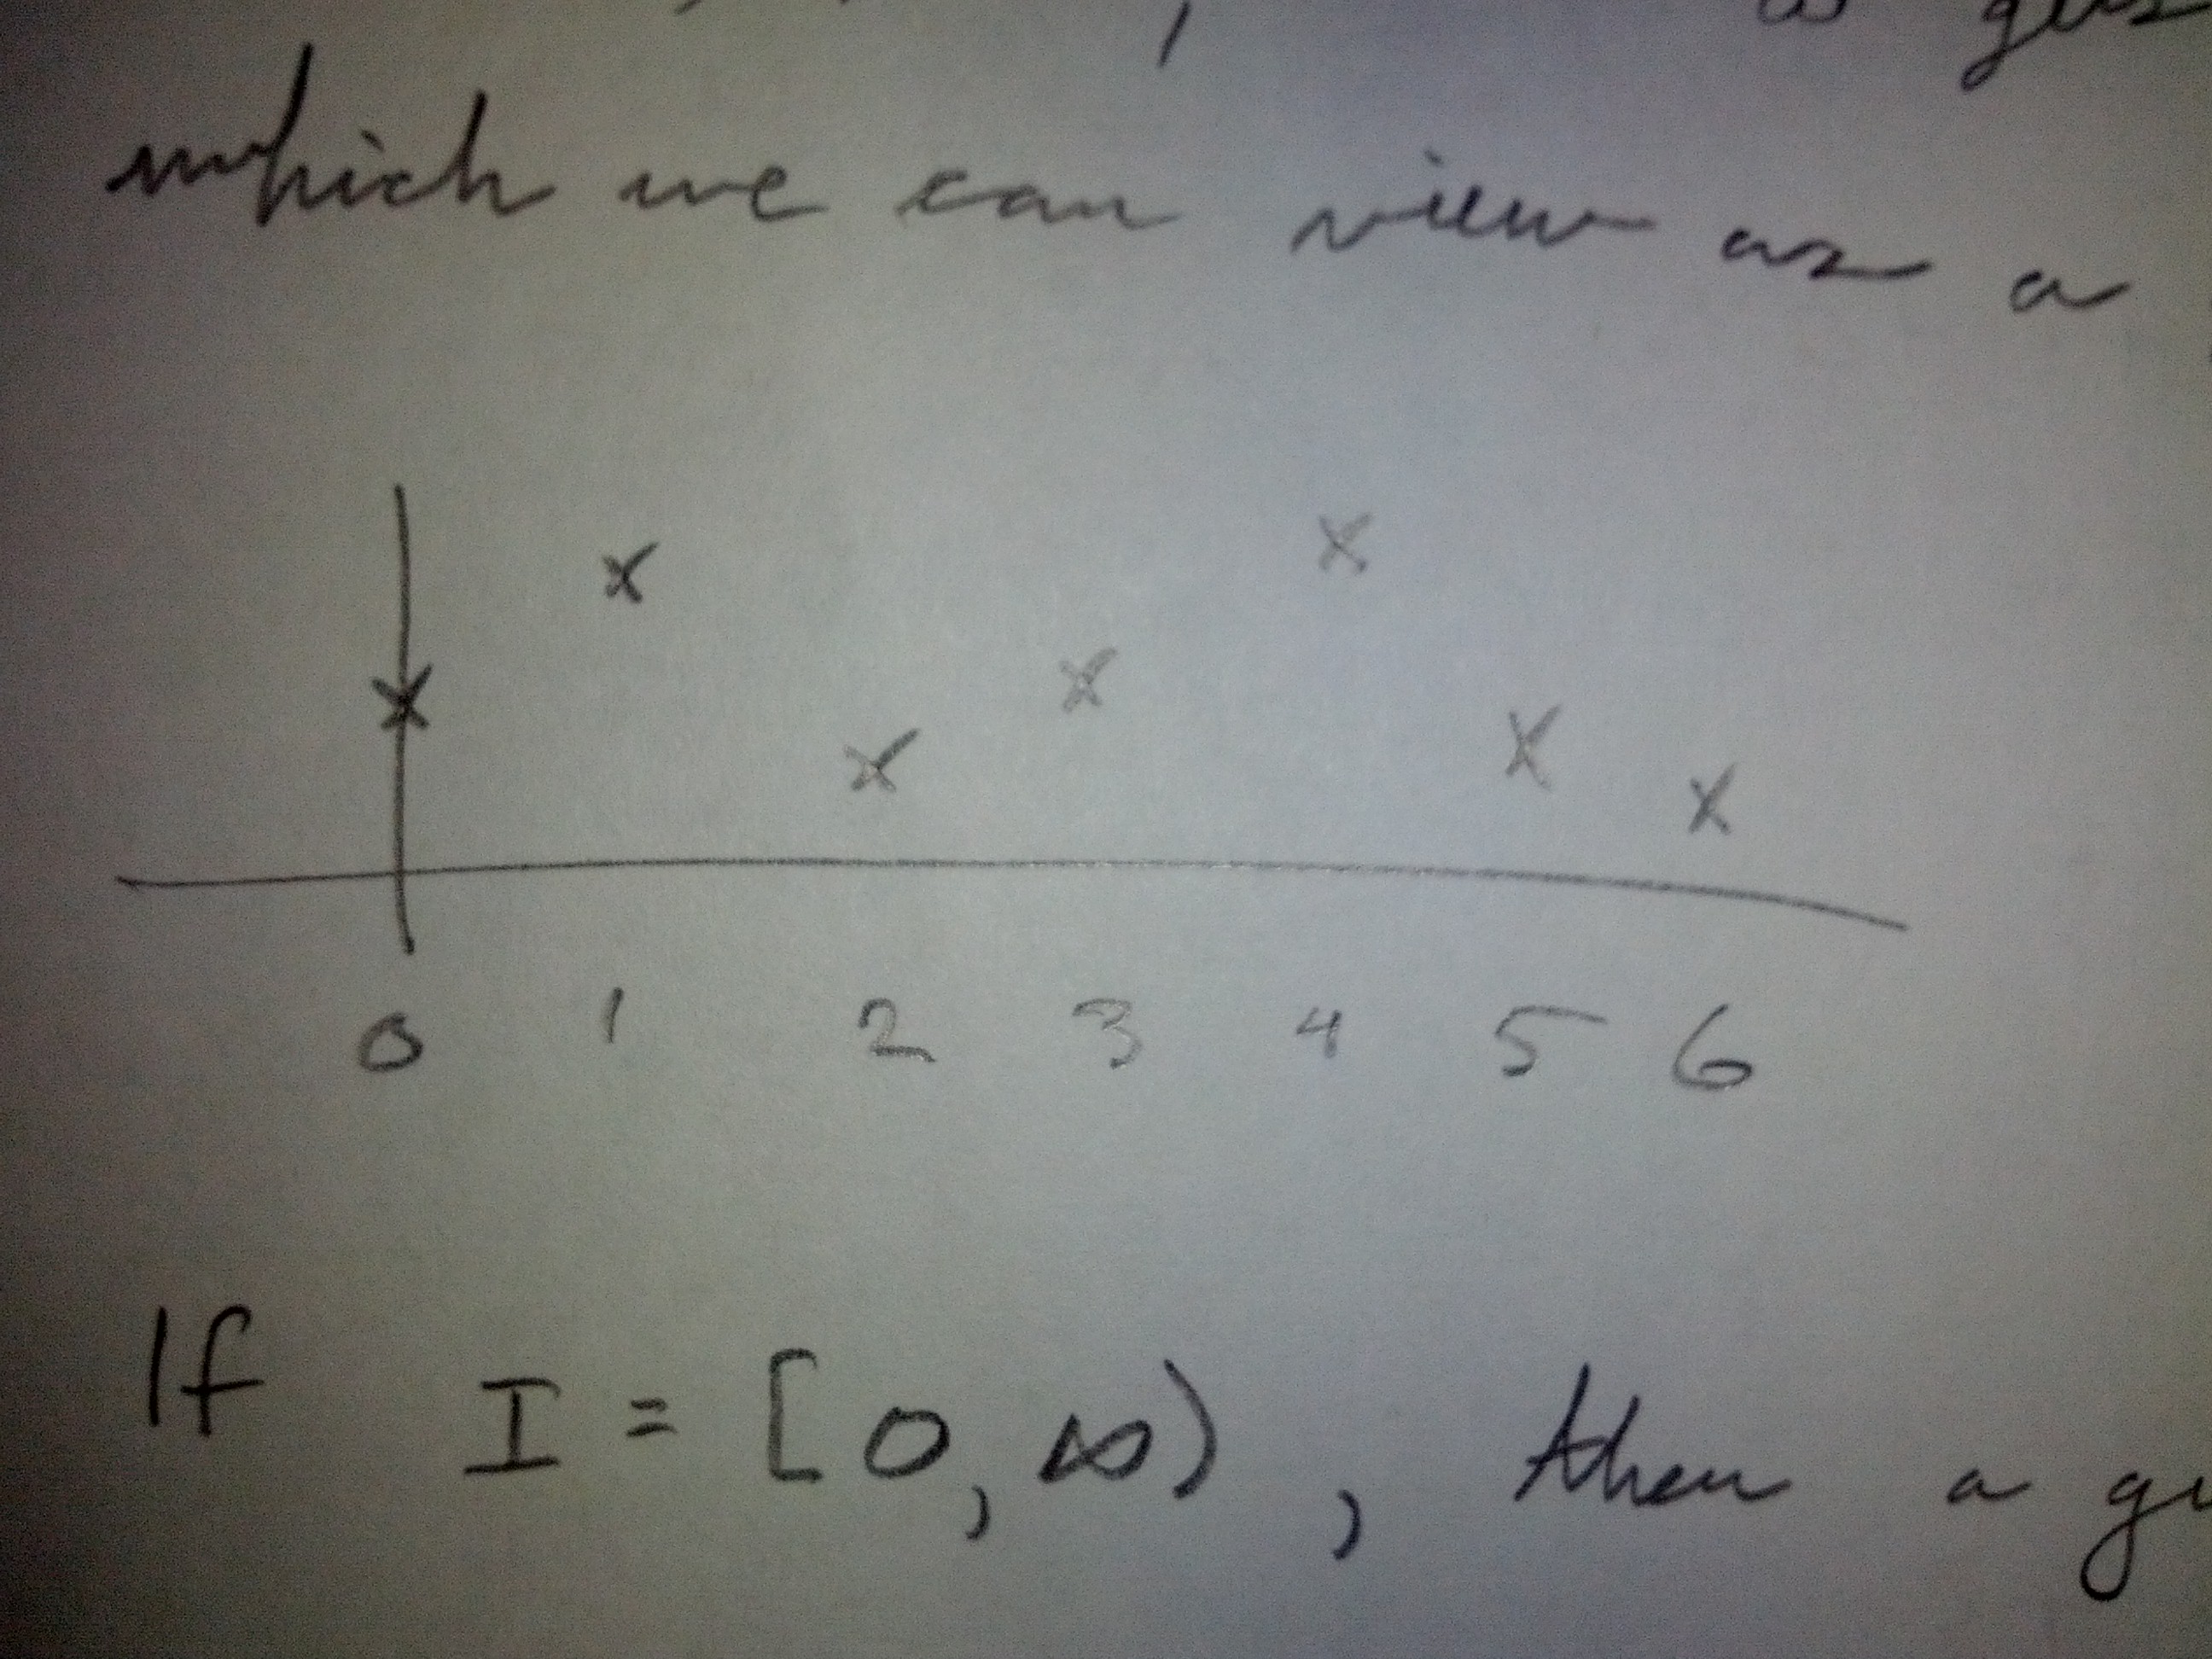 which we can view as a
0 1 2 3 4 5 6
If I = [0, ∞), then a